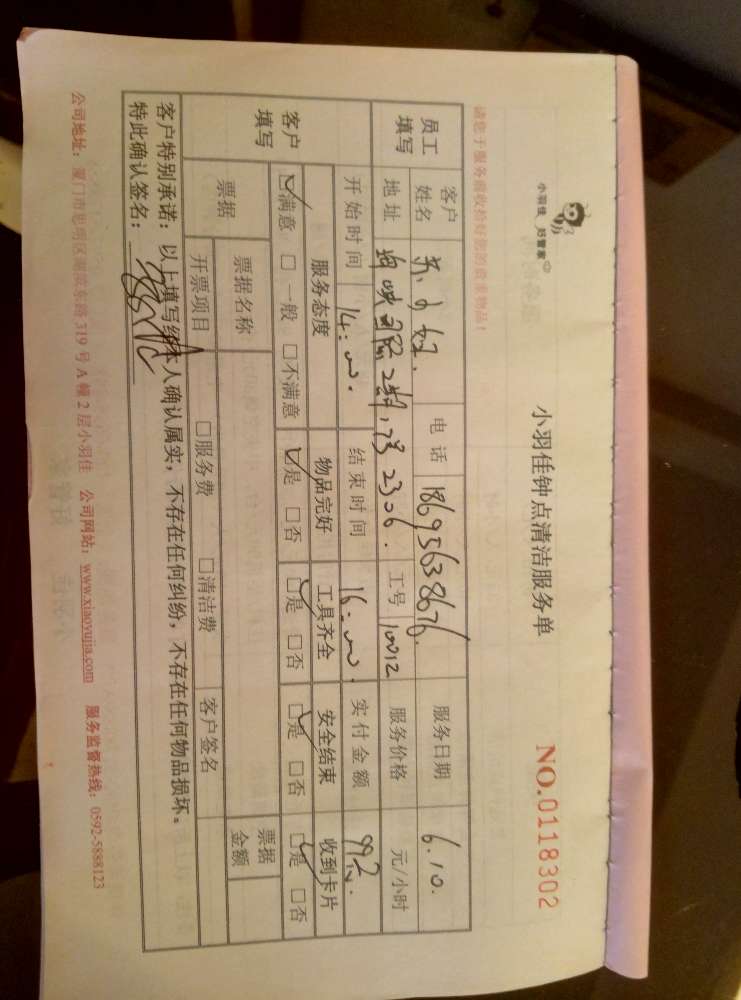 小羽佳 好管家
小羽佳钟点清洁服务单
NO.0118302
请您于服务前收拾好您的贵重物品!
员工填写 客户姓名 电话 18695638676 服务日期 6.10.
地址 2306. 工号 10012 服务价格 元/小时
开始时间 14:00. 结束时间 16:00. 实付金额 992.
客户填写 服务态度 物品完好 工具齐全 安全结束 收到卡片
☑满意 □一般 □不满意 ☑是 □否 ☑是 □否 ☑是 □否 ☑是 □否
票据 票据名称 票据金额
开票项目 □服务费 □清洁费 客户签名
客户特别承诺:以上填写经本人确认属实,不存在任何纠纷,不存在任何物品损坏。
特此确认签名:
公司地址:厦门市思明区湖滨东路319号A幢2层小羽佳 公司网站:www.xiaoyujia.com 服务监督热线:0592-5888123